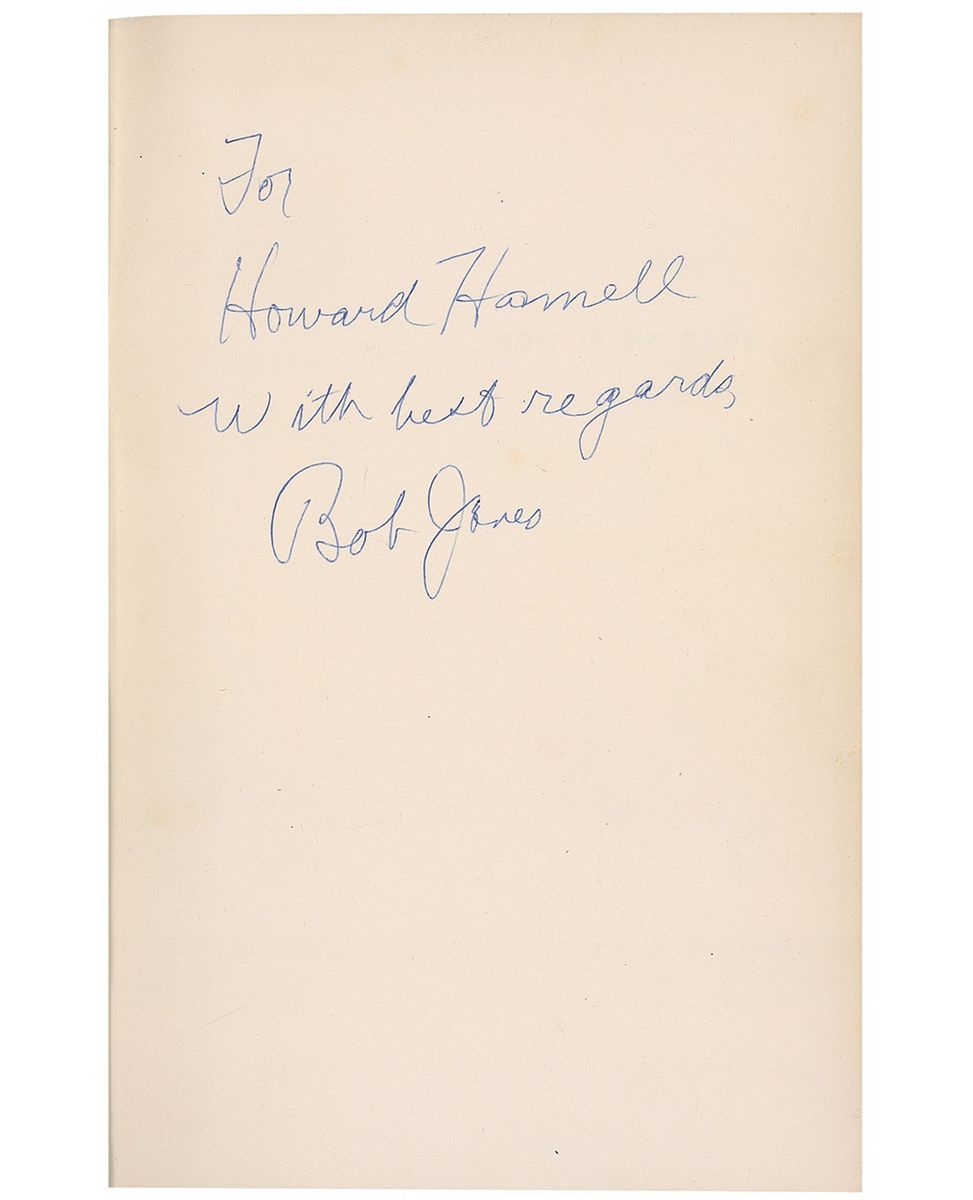 For
Howard Harnell
With best regards,
Bob Jones